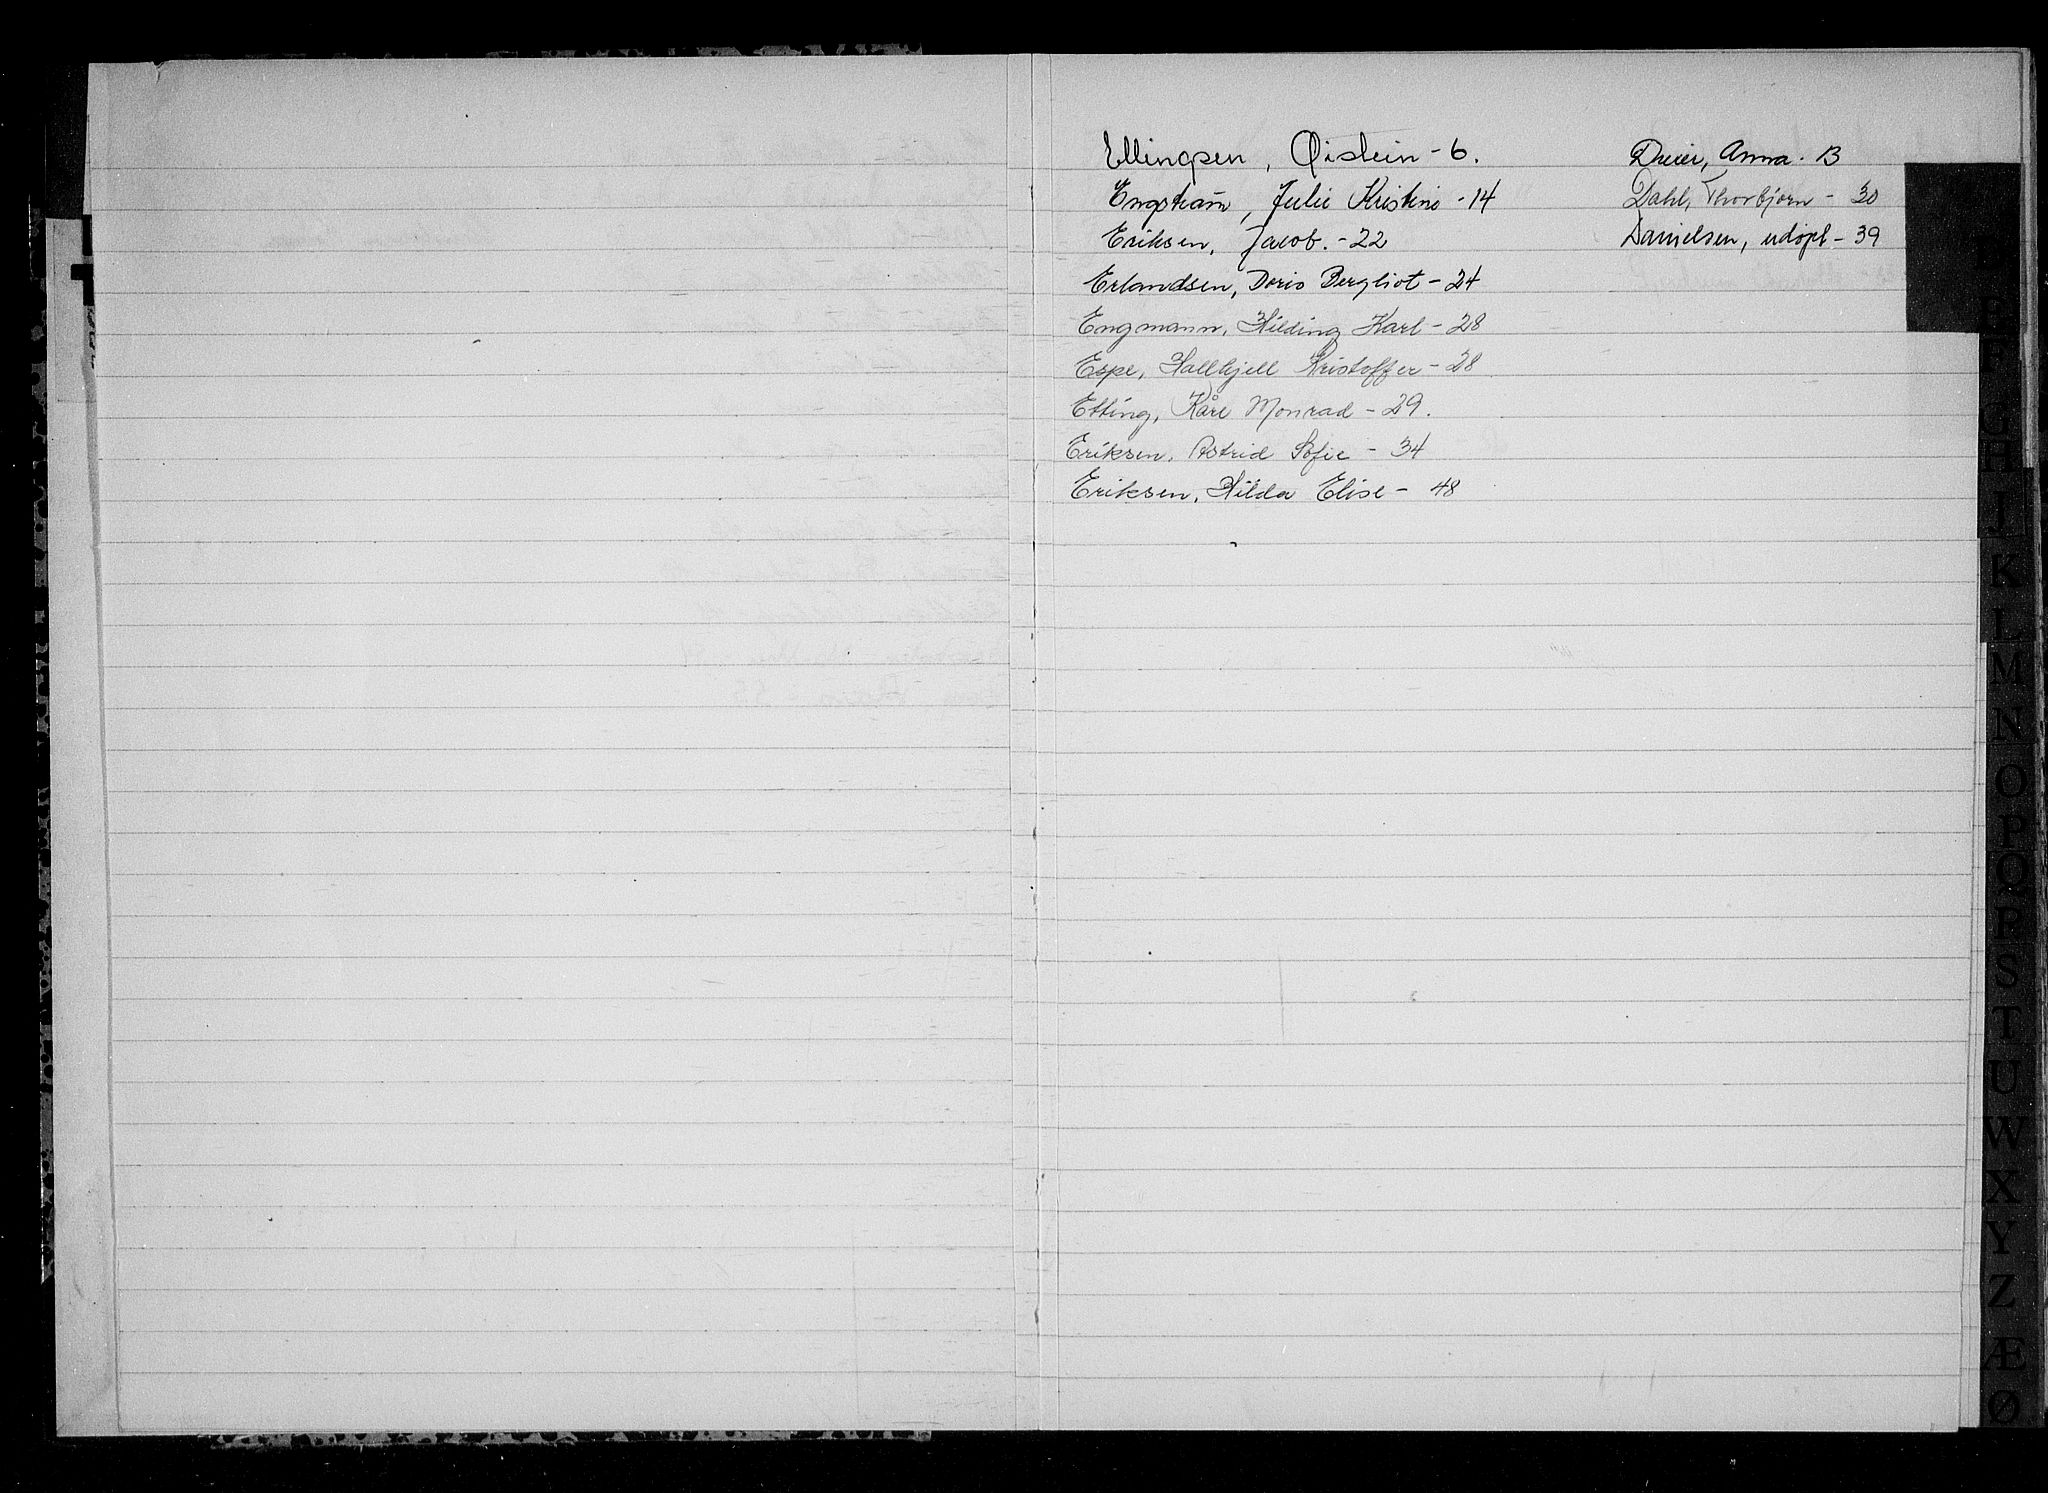 Ellingsen, Øistein - 6.
Engstrøm, Julie Kristine - 14
Eriksen, Jacob. - 22
Erlandsen, Doris Bergliot - 24
Engmann, Hilding Karl - 28
Espe, Hallkjell Kristoffer - 28
Etting, Kåre Monrad - 29.
Eriksen, Astrid Sofie - 34
Eriksen, Hilda Elise - 48
Dreier, Anna - 13
Dahl, Thorbjørn - 30
Danielsen, udøpt - 39
E
F
G
H
I
K
L
M
N
O
P
Q
R
S
T
U
W
X
Y
Z
Æ
Ø